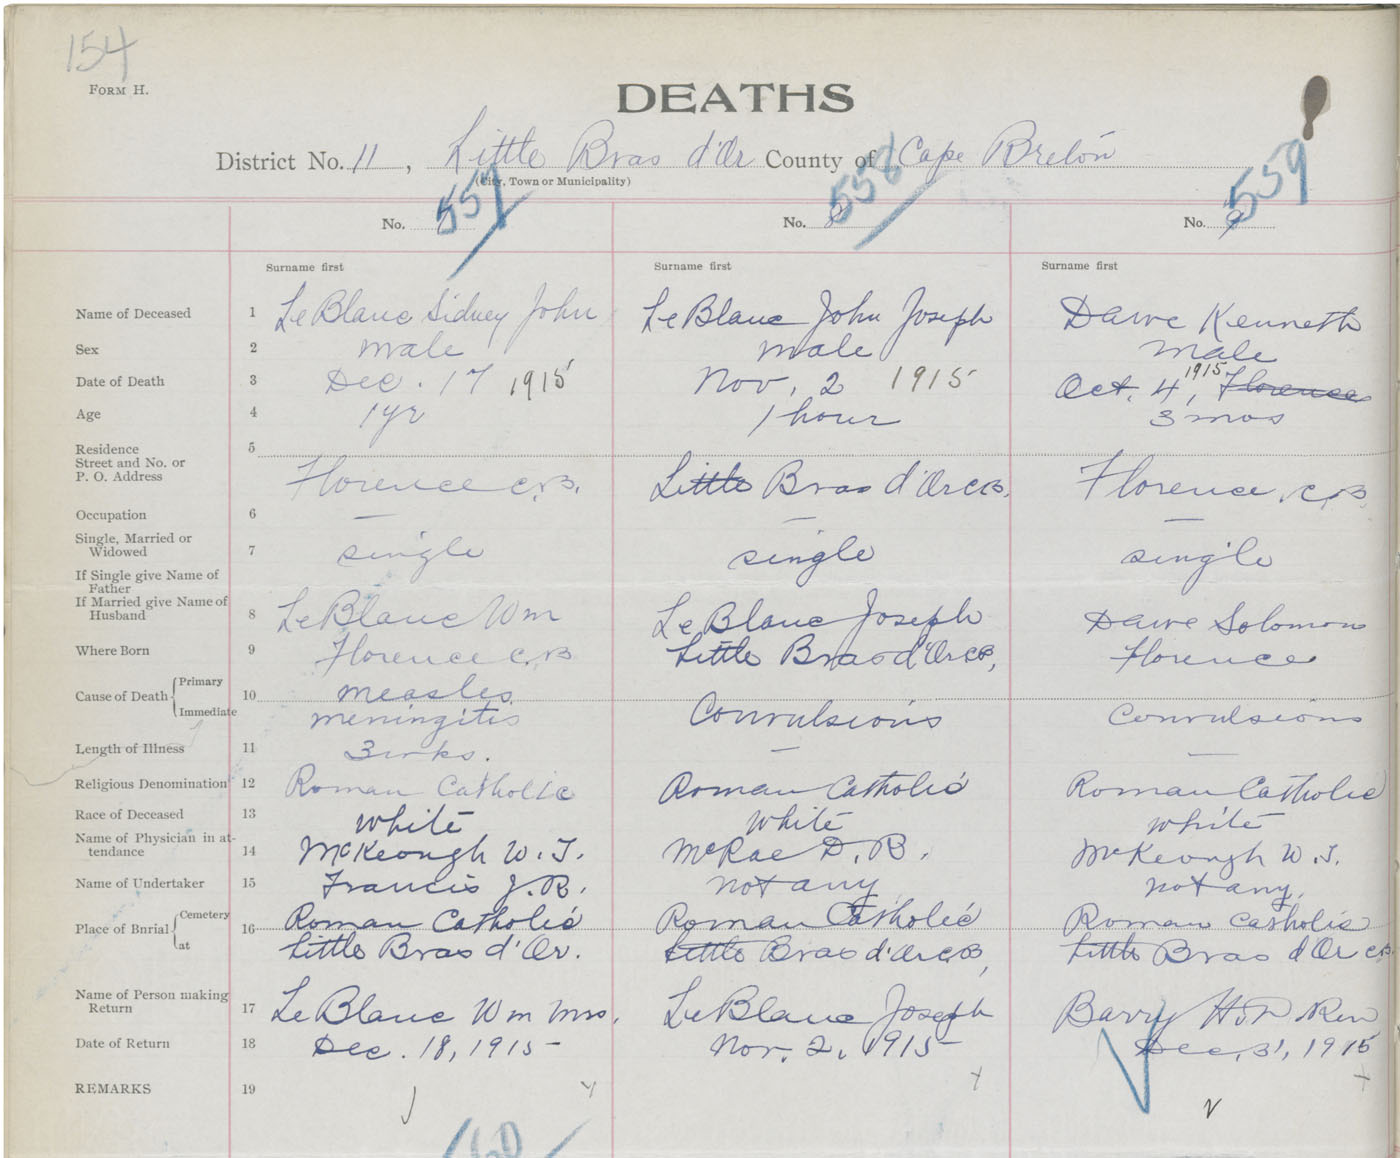 154
FORM H.
DEATHS
District No. 11, Little Bras d'Or County of Cape Breton
(City, Town or Municipality)
No. 7 557 No. 8 558 No. 9 559
Surname first Surname first Surname first
Name of Deceased 1 LeBlanc Sidney John LeBlanc John Joseph Dawe Kenneth
Sex 2 male male male
Date of Death 3 Dec. 17 1915 Nov. 2 1915 Oct. 4, 1915 Florence
Age 4 1 yr 1 hour 3 mos
Residence 5
Street and No. or
P. O. Address Florence C.B. Little Bras d'Or CB. Florence, C.B.
Occupation 6 — — —
Single, Married or
Widowed 7 single single single
If Single give Name of
Father
If Married give Name of
Husband 8 LeBlanc Wm LeBlanc Joseph Dawe Solomon
Where Born 9 Florence C.B Little Bras d'Or CB, Florence
Cause of Death { Primary 10 measles
Immediate meningitis Convulsions Convulsions
Length of Illness 11 3 wks. — —
Religious Denomination 12 Roman Catholic Roman Catholic Roman Catholic
Race of Deceased 13 white white white
Name of Physician in at-
tendance 14 McKeough W. J. McRae D. B. McKeough W. J.
Name of Undertaker 15 Francis J. R. not any not any,
Place of Burial { Cemetery 16 Roman Catholic Roman Catholic Roman Catholic
at Little Bras d'Or. Little Bras d'Or CB, Little Bras d'Or CB.
Name of Person making
Return 17 LeBlanc Wm Mrs. LeBlanc Joseph Barry Rev
Date of Return 18 Dec. 18, 1915 Nov. 2, 1915 Dec, 31, 1915
REMARKS 19
60